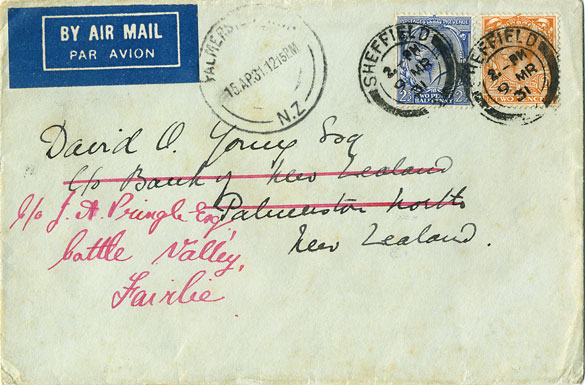 BY AIR MAIL
PAR AVION
PALMERSTON
15 AP 31 12 15 PM
N.Z
SHEFFIELD
2 PM
9 MR
31
SHEFFIELD
2 PM
9 MR
31
POSTAGE REVENUE
TWO PENCE
HALFPENNY
TWO PENCE
David O. Young Esq
c/o Bank of New Zealand
c/o J. A. Pringle Esq, Palmerston North
New Zealand.
Cattle Valley,
Fairlie